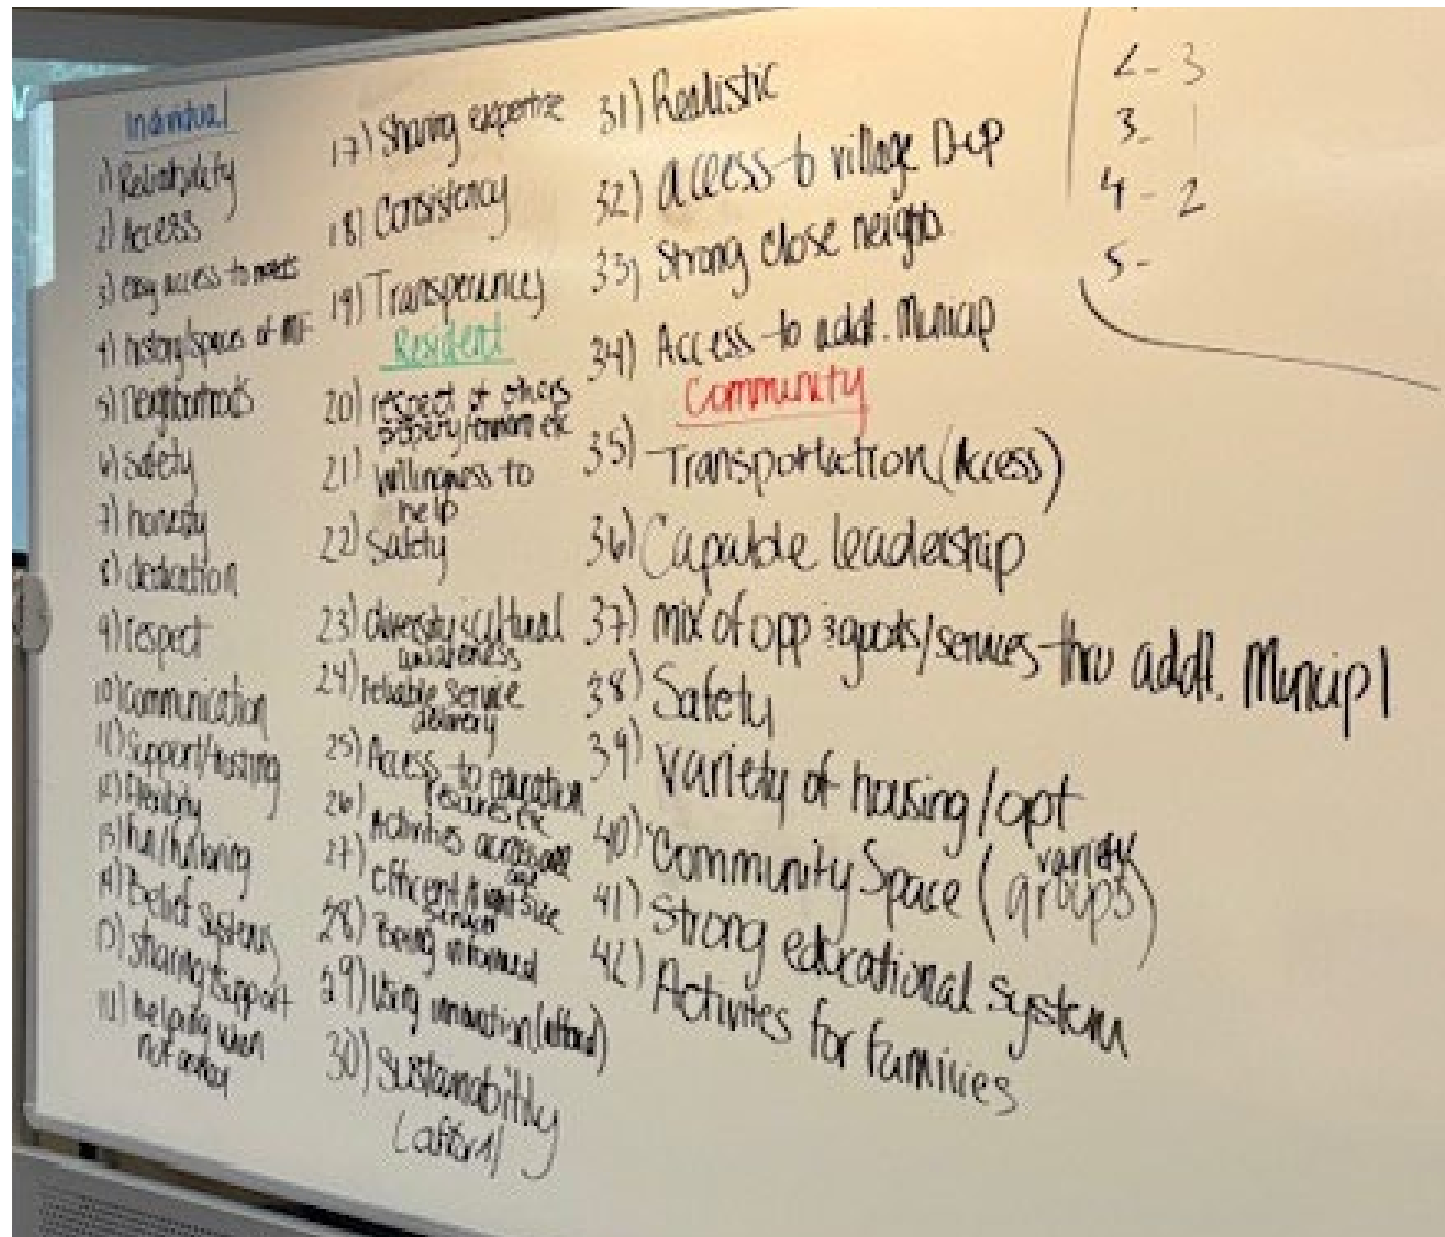 Individual
1) Reliability
2) Access
3) easy access to
4) history/spaces of MF
5) Neighborhoods
6) safety
7) honesty
8) dedication
9) respect
10) Communication
11) Support/trusting
12) Flexibility
13) fun/
14) Belief Systems
15) sharing & support
16) helping when
not asked
17) Sharing expertise
18) Consistency
19) Transperency
Resident
20) respect of others
property/ etc
21) willingness to
help
22) Safety
23) diversity & cultural
awareness
24) reliable service
delivery
25) Access to education
resources etc
26) Activities across all
27) efficient/right size
28) Being informed
29) Using innovation (afford)
30) Sustainability
(afford)
31) Realistic
32) Access to village Dep
33) Strong close neighb.
34) Access to addt. Municip
Community
35) Transportation (Access)
36) Capable leadership
37) mix of opp & goods/services thru addt. Municipl
38) Safety
39) variety of housing/opt
40) Community Space (variety
groups)
41) Strong educational system
42) Activites for families
2- 3
3- 1
4- 2
5-